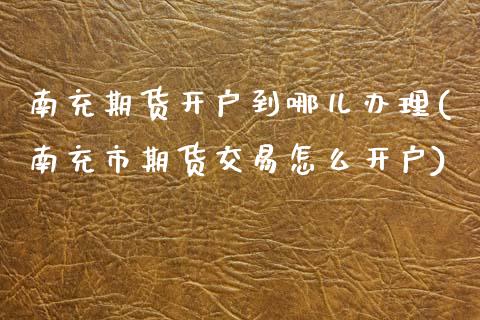 南充期货开户到哪儿办理(
南充市期货交易怎么开户)